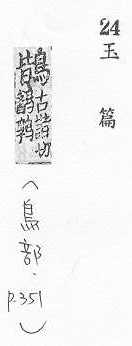 24
玉篇
鶛古諧切
鶉
(鳥部. p.351)